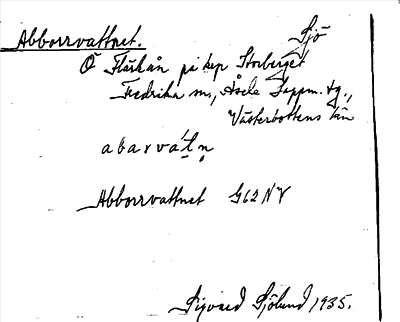 Abborrvattnet. Sjö
Ö Flärkån på kep Storberget
Fredrika sn, Åsele Lappm. tg.,
Västerbottens län
abarvátn̥
Abborrvattnet G62NV
Sigvard Sjölund 1935.